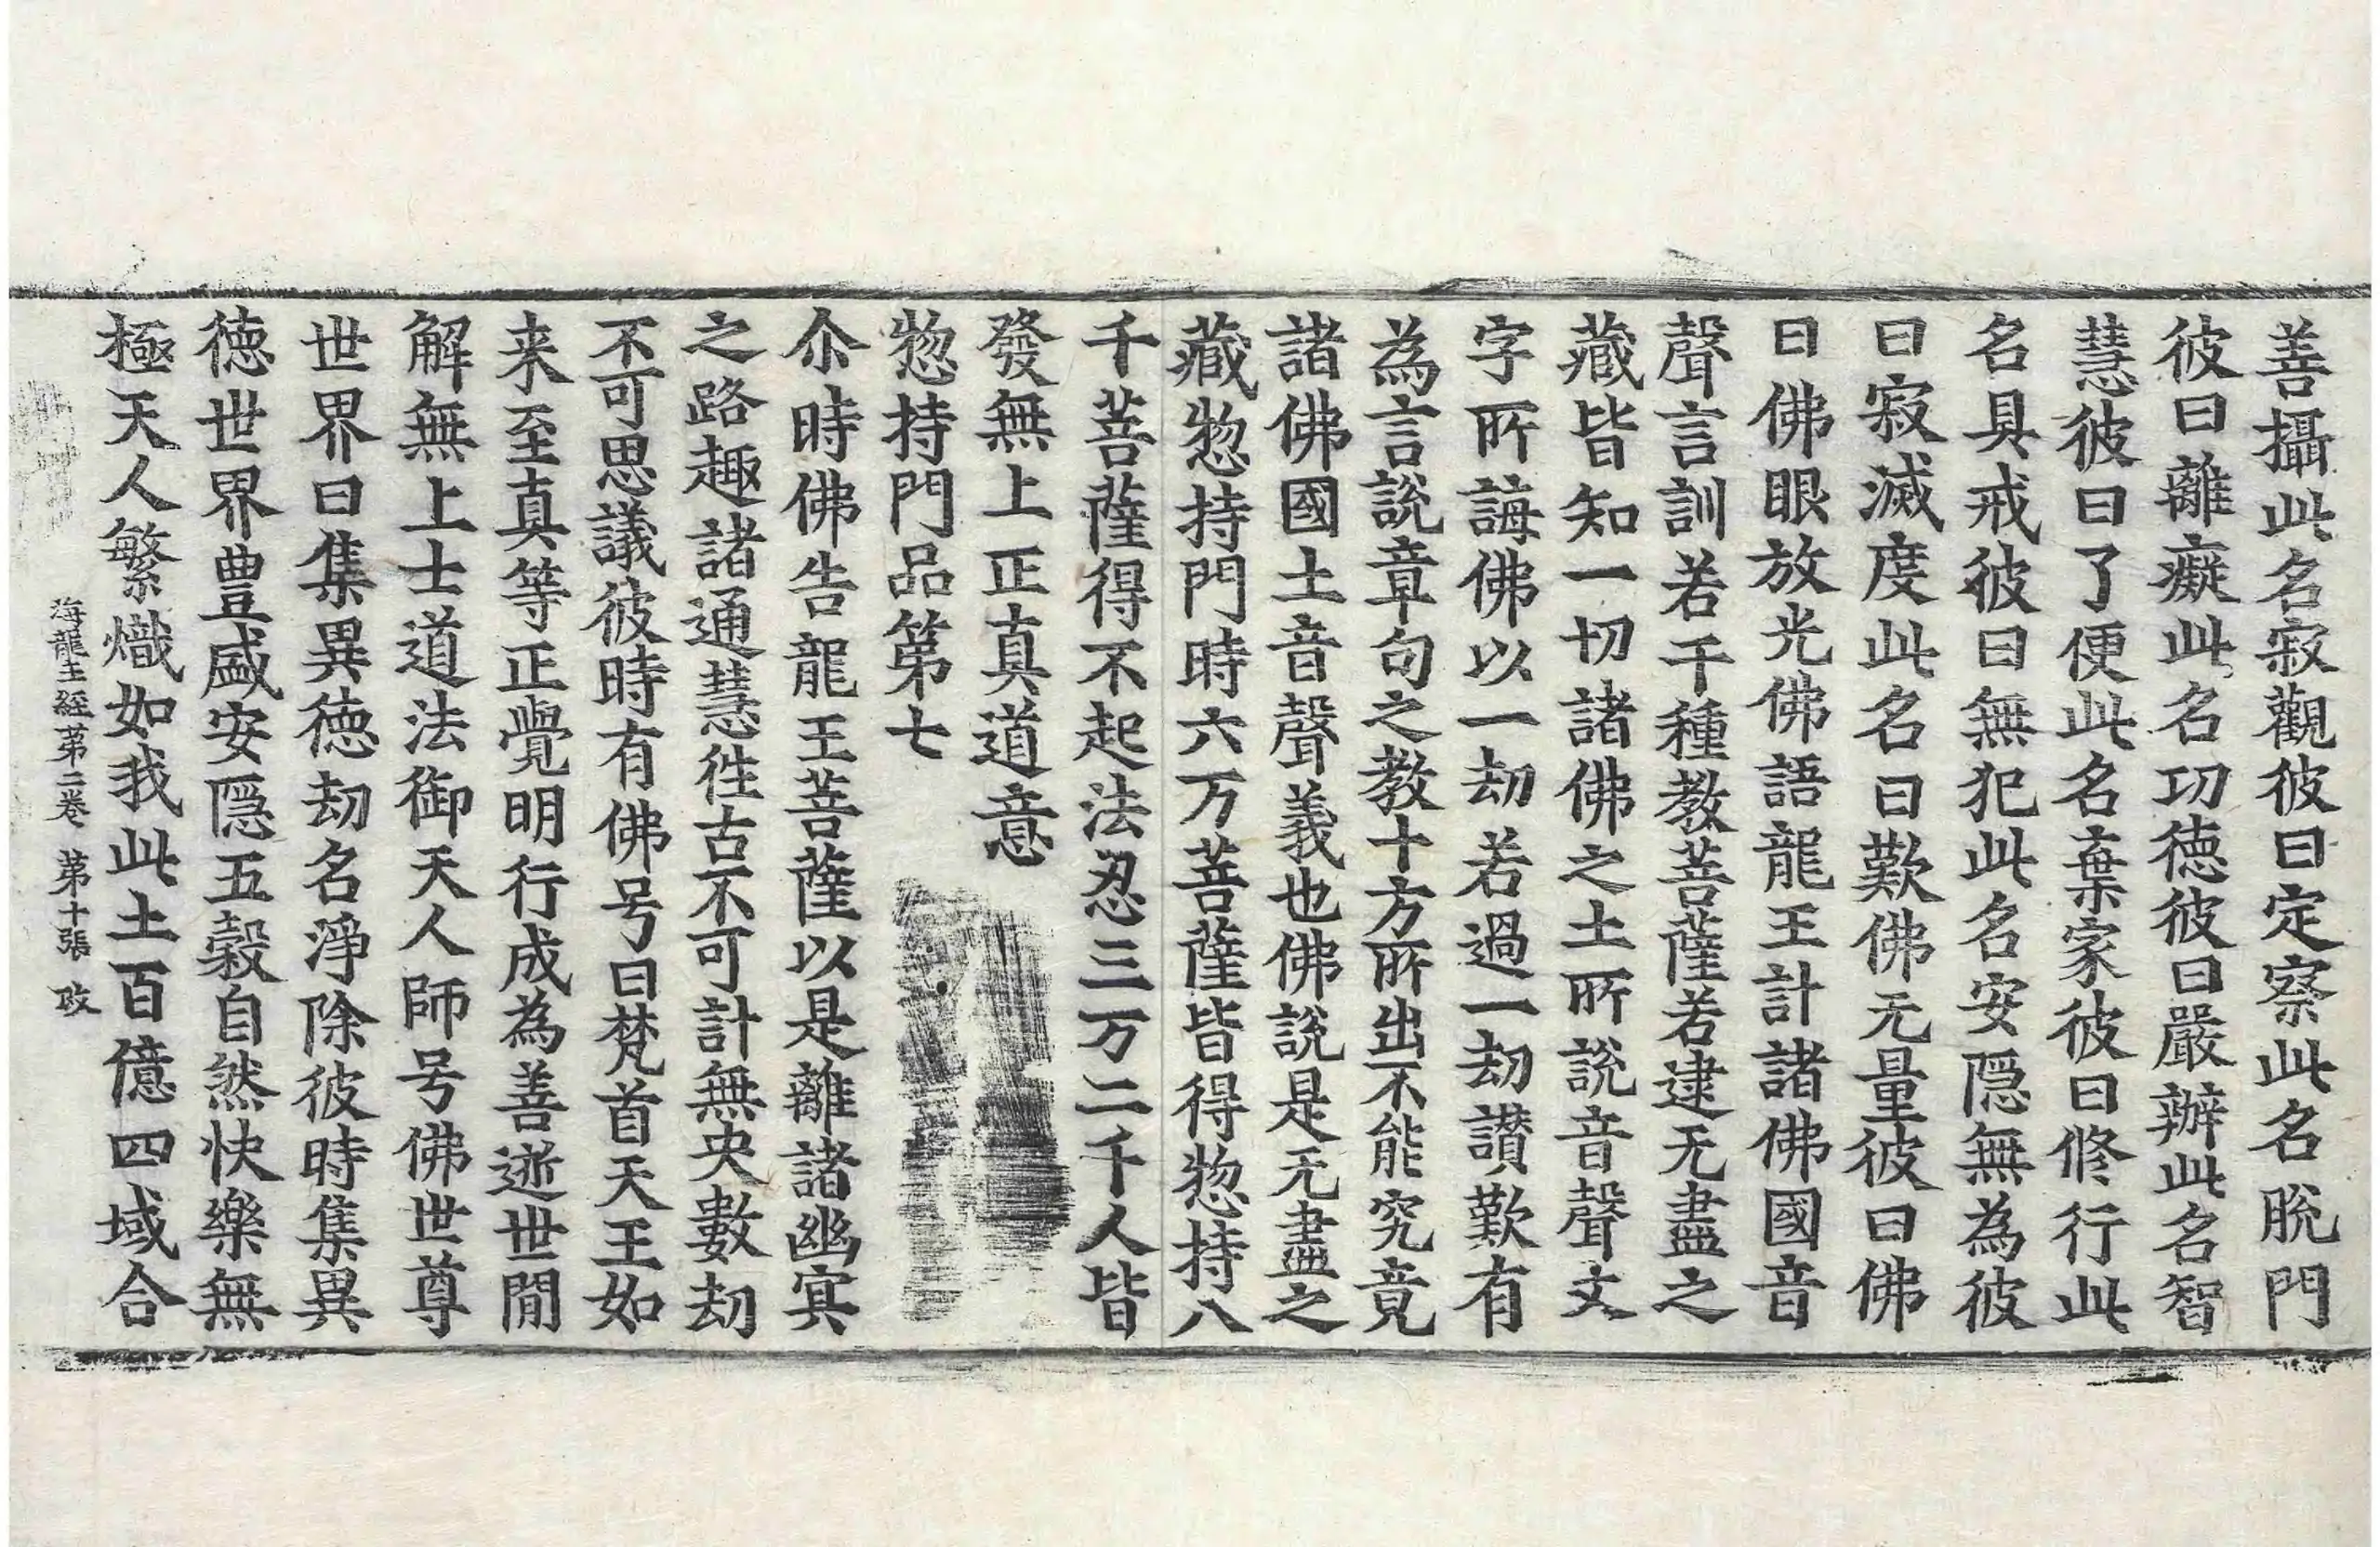 善攝此名寂觀彼曰定察此名脫門
彼曰離癡此名功德彼曰嚴辦此名智
慧彼曰了便此名棄家彼曰修行此
名具戒彼曰無犯此名安隱無為彼
曰寂滅度此名曰歎佛无量彼曰佛
曰佛眼放光佛語龍王計諸佛國音
聲言訓若干種教菩薩若逮无盡之
藏皆知一切諸佛之土所說音聲文
字所誨佛以一劫若過一劫讚歎有
為言說章句之教十方所出不能究竟
諸佛國土音聲義也佛說是无盡之
藏揔持門時六万菩薩皆得揔持八
千菩薩得不起法忍三万二千人皆
發無上正真道意
揔持門品第七
尒時佛告龍王菩薩以是離諸幽冥
之路趣諸通慧徃古不可計無央數劫
不可思議彼時有佛号曰梵首天王如
来至真等正覺明行成為善逝世閒
解無上士道法御天人師号佛世尊
世界曰集異德劫名淨除彼時集異
德世界豊盛安隱五穀自然快樂無
極天人繁熾如我此土百億四域合
海龍王經第二卷　第十張　改